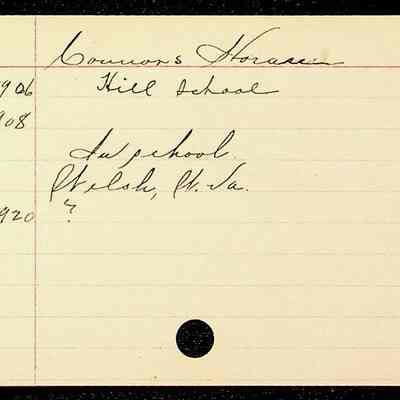 Connors Horace
906 Hill School
908
In school.
Welsh, W. Va.
920 ?